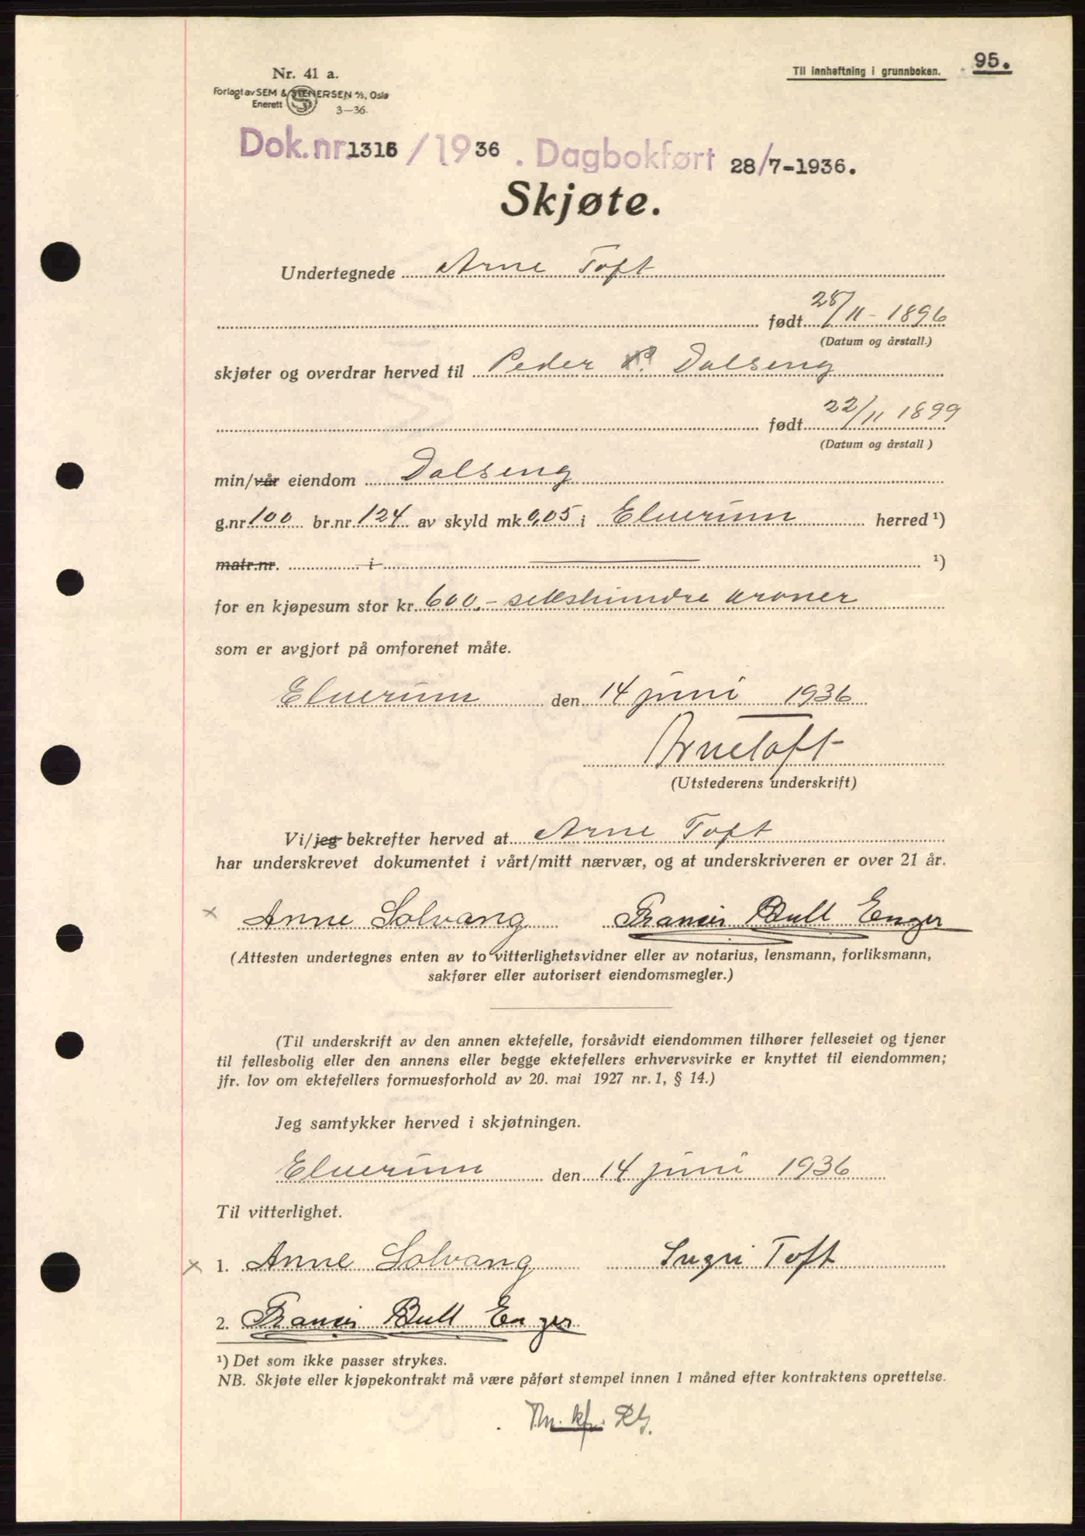 95.
Til innheftning i grunnboken.
Nr. 41 a.
Forlagt av SEM & STENERSEN A/S, Oslo
Enerett
3—36.
Dok.nr. 1316 / 1936. Dagbokført 28/7-1936.
Skjøte.
Undertegnede Arne Toft
født 28/11 - 1896
(Datum og årstall.)
skjøter og overdrar herved til Peder P. Dalseng
født 22/11 1899
(Datum og årstall)
min/vår eiendom Dalseng
g.nr 100 br.nr. 124 av skyld mk 0,05 i Elverum herred ¹)
matr.nr. i ¹)
for en kjøpesum stor kr. 600,- sekshundre kroner
som er avgjort på omforenet måte.
Elverum den 14 juni 1936
Arne Toft
(Utstederens underskrift)
Vi/jeg bekrefter herved at Arne Toft
har underskrevet dokumentet i vårt/mitt nærvær, og at underskriveren er over 21 år.
x Anne Solvang Francis Bull Enger
(Attesten undertegnes enten av to vitterlighetsvidner eller av notarius, lensmann, forliksmann,
sakfører eller autorisert eiendomsmegler.)
(Til underskrift av den annen ektefelle, forsåvidt eiendommen tilhører felleseiet og tjener
til fellesbolig eller den annens eller begge ektefellers erhvervsvirke er knyttet til eiendommen;
jfr. lov om ektefellers formuesforhold av 20. mai 1927 nr. 1, § 14.)
Jeg samtykker herved i skjøtningen.
Elverum den 14 juni 1936
Til vitterlighet.
x 1. Anne Solvang Ingri Toft
2. Francis Bull Enger
¹) Det som ikke passer strykes.
NB. Skjøte eller kjøpekontrakt må være påført stempel innen 1 måned efter kontraktens oprettelse.